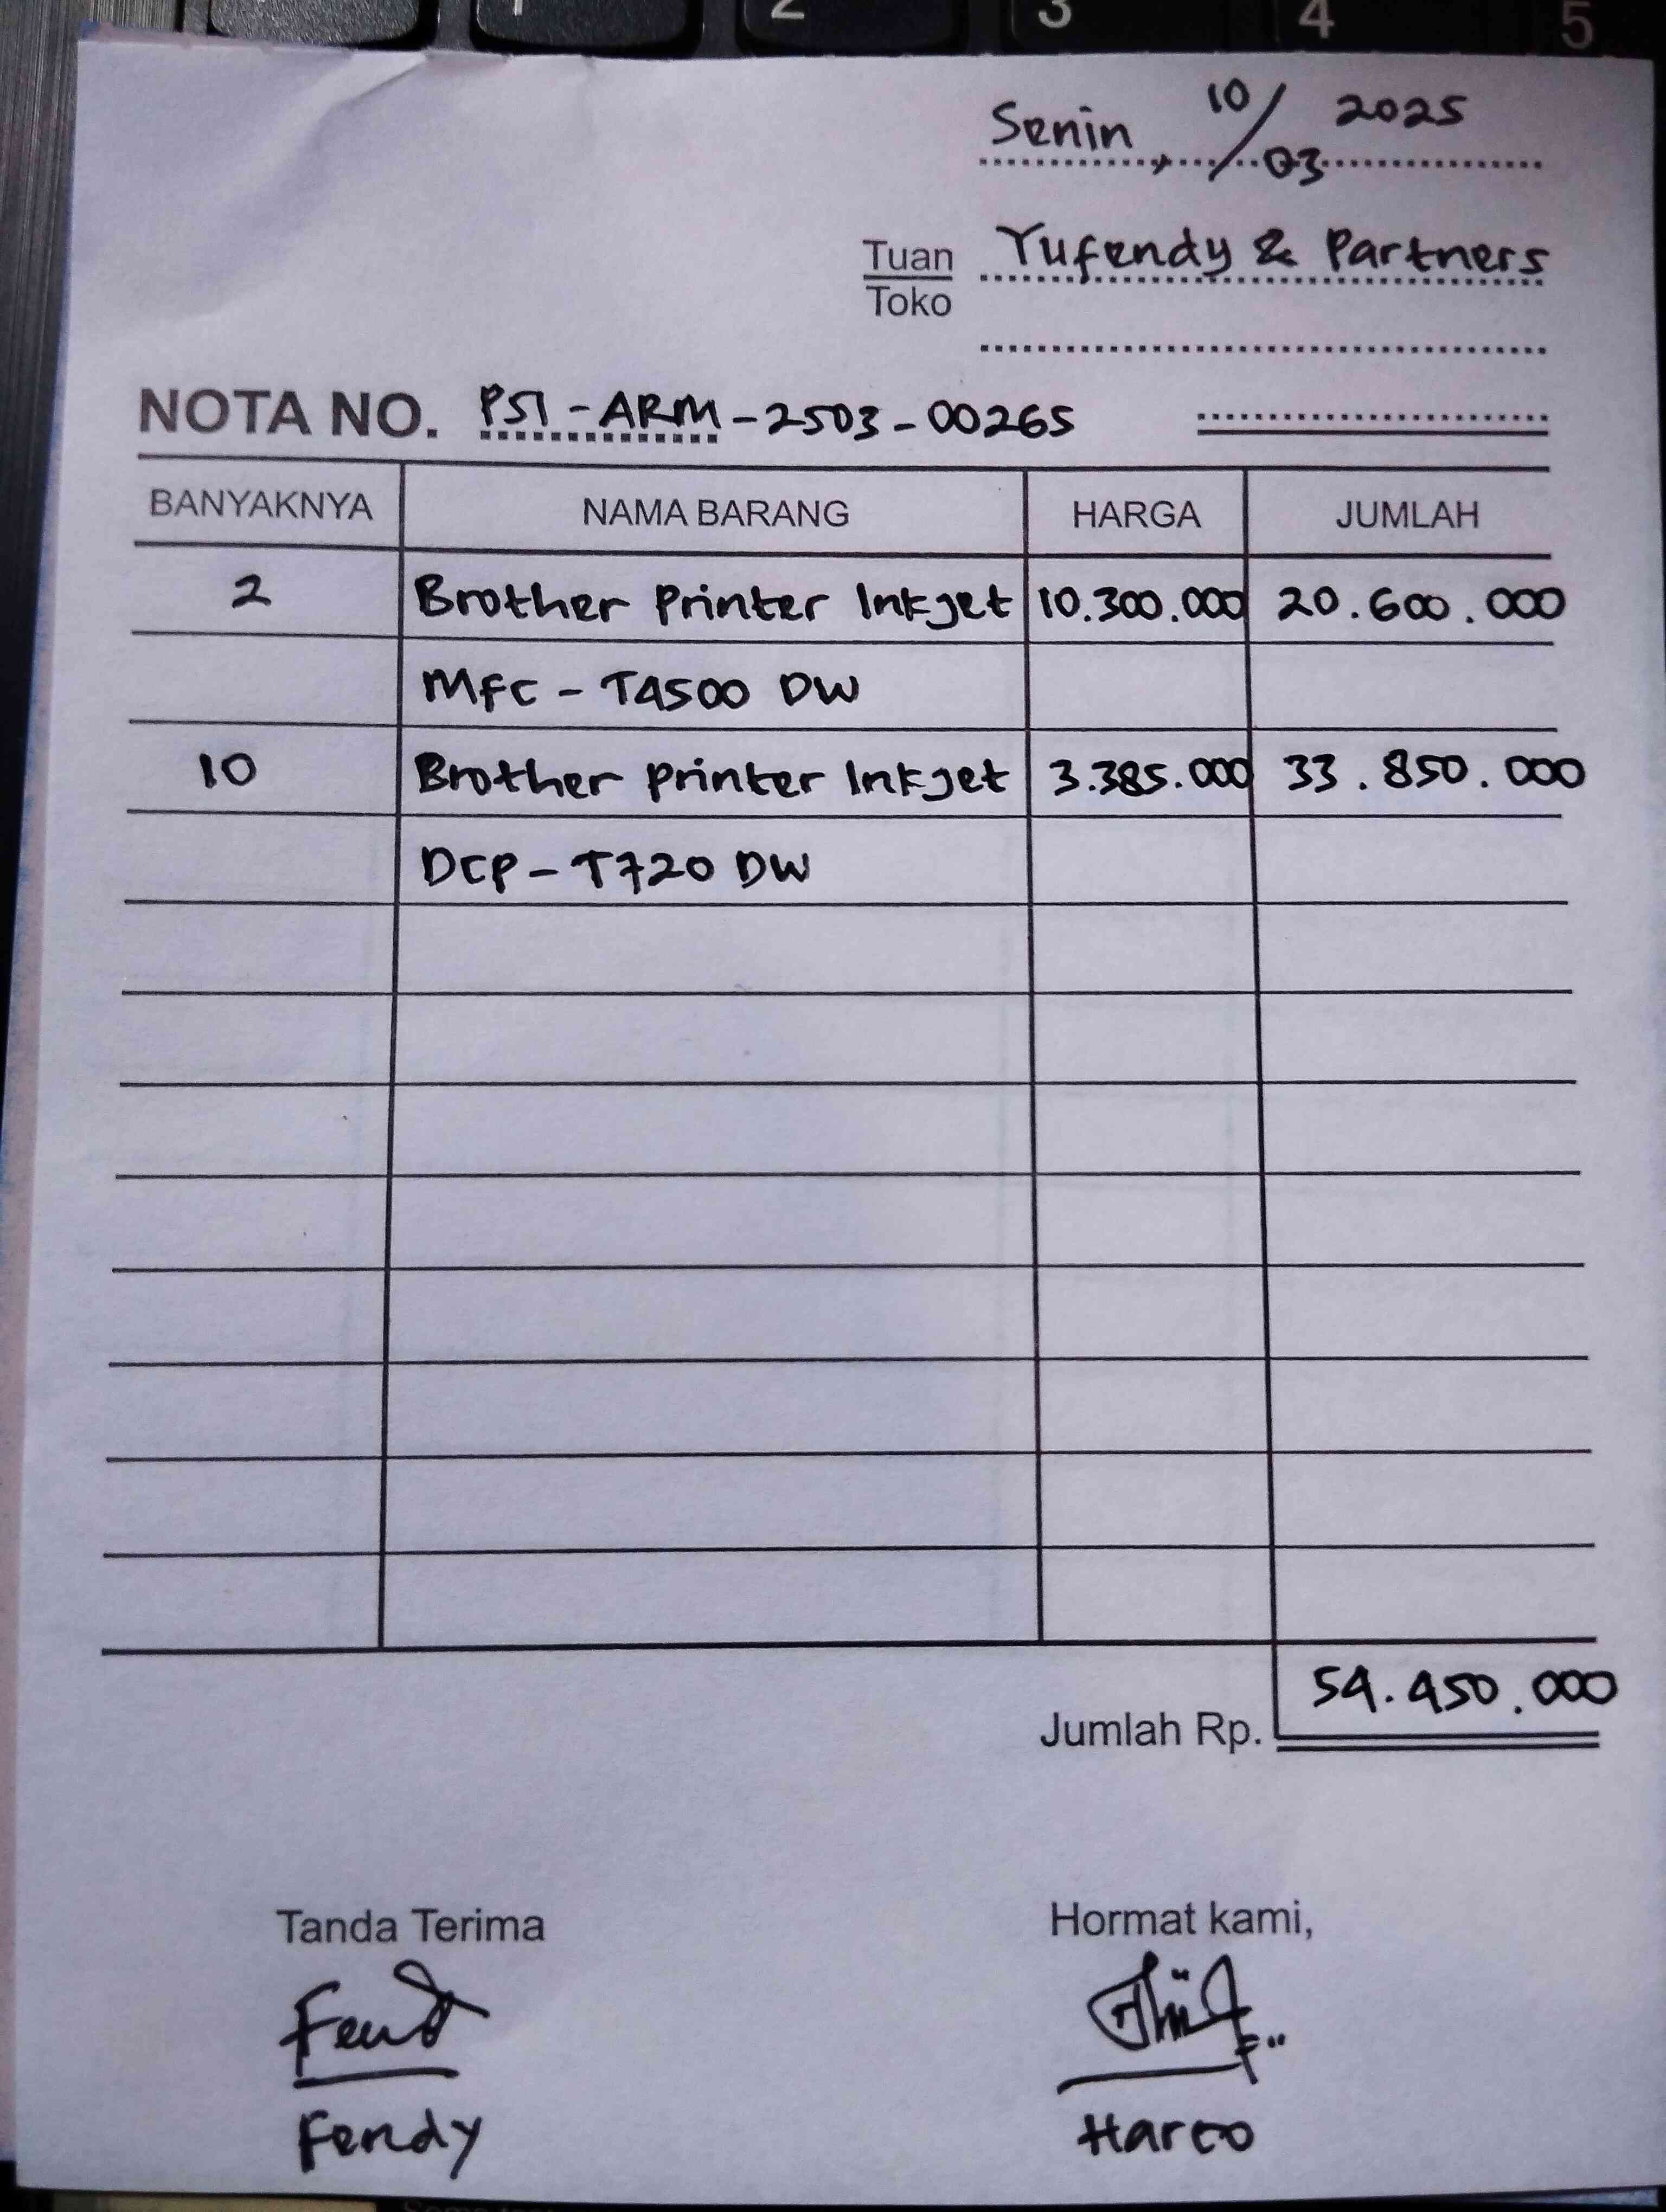 1 2 3 4 5
Senin, 10/03 2025
Tuan Yufendy & Partners
Toko
NOTA NO. PSI-ARM-2503-00265
BANYAKNYA NAMA BARANG HARGA JUMLAH
2 Brother Printer Inkjet 10.300.000 20.600.000
MFC-T4500 DW
10 Brother Printer Inkjet 3.385.000 33.850.000
DCP-T720 DW
54.450.000
Jumlah Rp.
Tanda Terima Hormat kami,
Fendy Harco